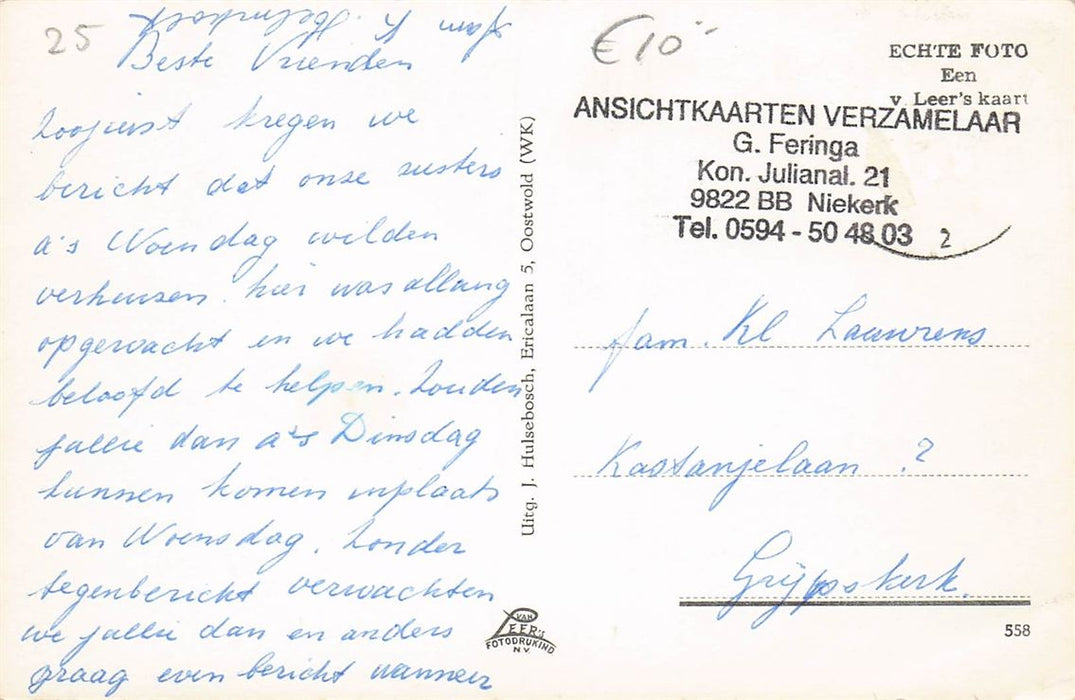 25
Beste Vrienden
Zoojuist kregen we
bericht dat onze zusters
a's Woendag wilden
verhuizen. hier was allang
opgewacht en we hadden
beloofd te helpen. Zouden
jullie dan a's Dinsdag
kunnen komen inplaats
van Woensdag. Zonder
tegenbericht verwachten
we jullie dan en anders
graag even bericht wanneer
fam
Uitg. J. Hulsebosch, Ericalaan 5, Oostwold (WK)
VAN
LEER'S
FOTODRUKIND
N.V.
€10
ECHTE FOTO
Een
v Leer's kaart
ANSICHTKAARTEN VERZAMELAAR
G. Feringa
Kon. Julianal. 21
9822 BB Niekerk
Tel. 0594 - 50 48 03
2
fam. Kl Lauwrens
Kastanjelaan ?
Grijpskerk.
558